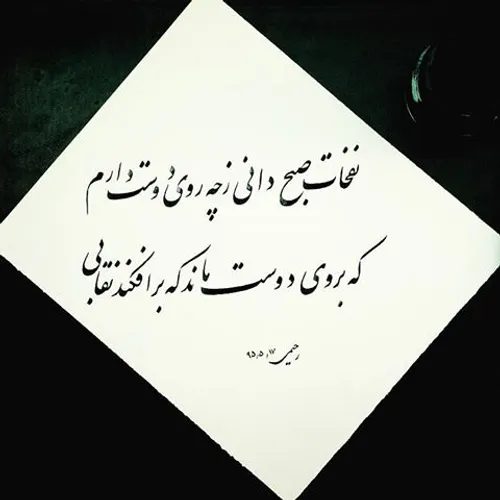 نفحات صبح دانی ز چه روی دوست دارم
که بروی دوست ماند که برافکند نقابی
رحیمی ۹۵٫۵٫۱۷